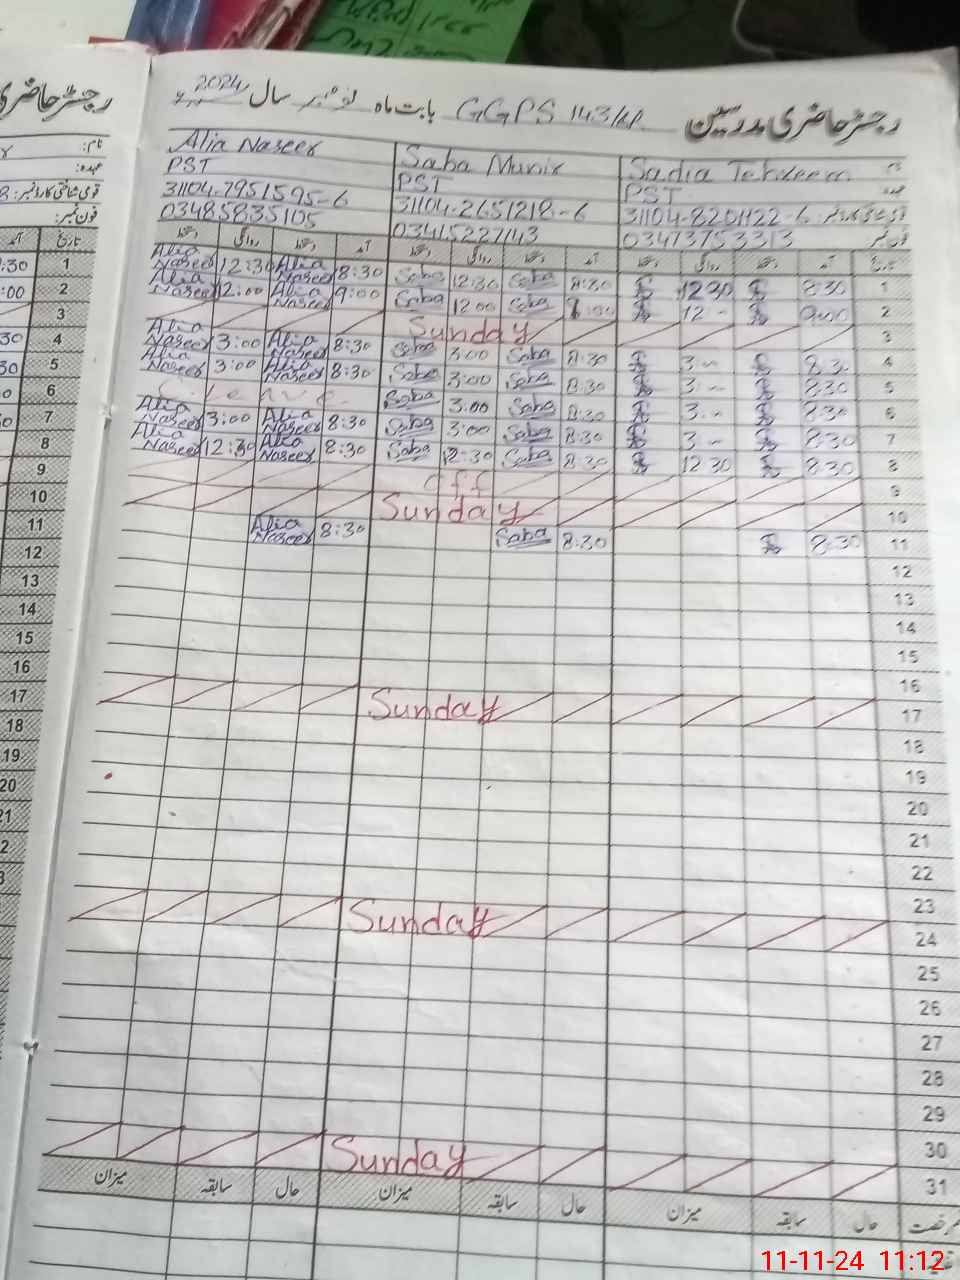 رجسٹر حاضری مدرسین GGPS 143/ بابت ماہ نومبر سال 2024ء
Alia Naseer Saba Munir Sadia Tehreem
PST PST PST
31104-7951595-6 31104-2651218-6 31104-8201122-6
03485835105 03415227143 03473753313
دستخط روانگی دستخط آمد دستخط روانگی دستخط آمد دستخط روانگی دستخط آمد تاریخ
Alia Naseer 12:30 Alia Naseer 8:30 Saba 12:30 Saba 8:30 12 30 8:30 1
Alia Naseer 12:00 Alia Naseer 9:00 Saba 12:00 Saba 12 - 9:00 2
Sunday 3
Alia Naseer 3:00 Alia Naseer 8:30 Saba 3:00 Saba 8:30 3 - 8:30 4
Alia Naseer 3:00 Alia Naseer 8:30 Saba 3:00 Saba 8:30 3 - 8:30 5
Leave Saba 3:00 Saba 8:30 3 - 8:30 6
Alia Naseer 3:00 Alia Naseer 8:30 Saba 3:00 Saba 8:30 3 - 8:30 7
Alia Naseer 12:30 Alia Naseer 8:30 Saba 12:30 Saba 8:30 12 30 8:30 8
off 9
Sunday 10
Alia Naseer 8:30 Saba 8:30 8:30 11
12
13
14
15
16
Sunday 17
18
19
20
21
22
23
Sunday 24
25
26
27
28
29
30
Sunday 31
میزان سابقہ حال میزان سابقہ حال میزان سابقہ حال
11-11-24 11:12